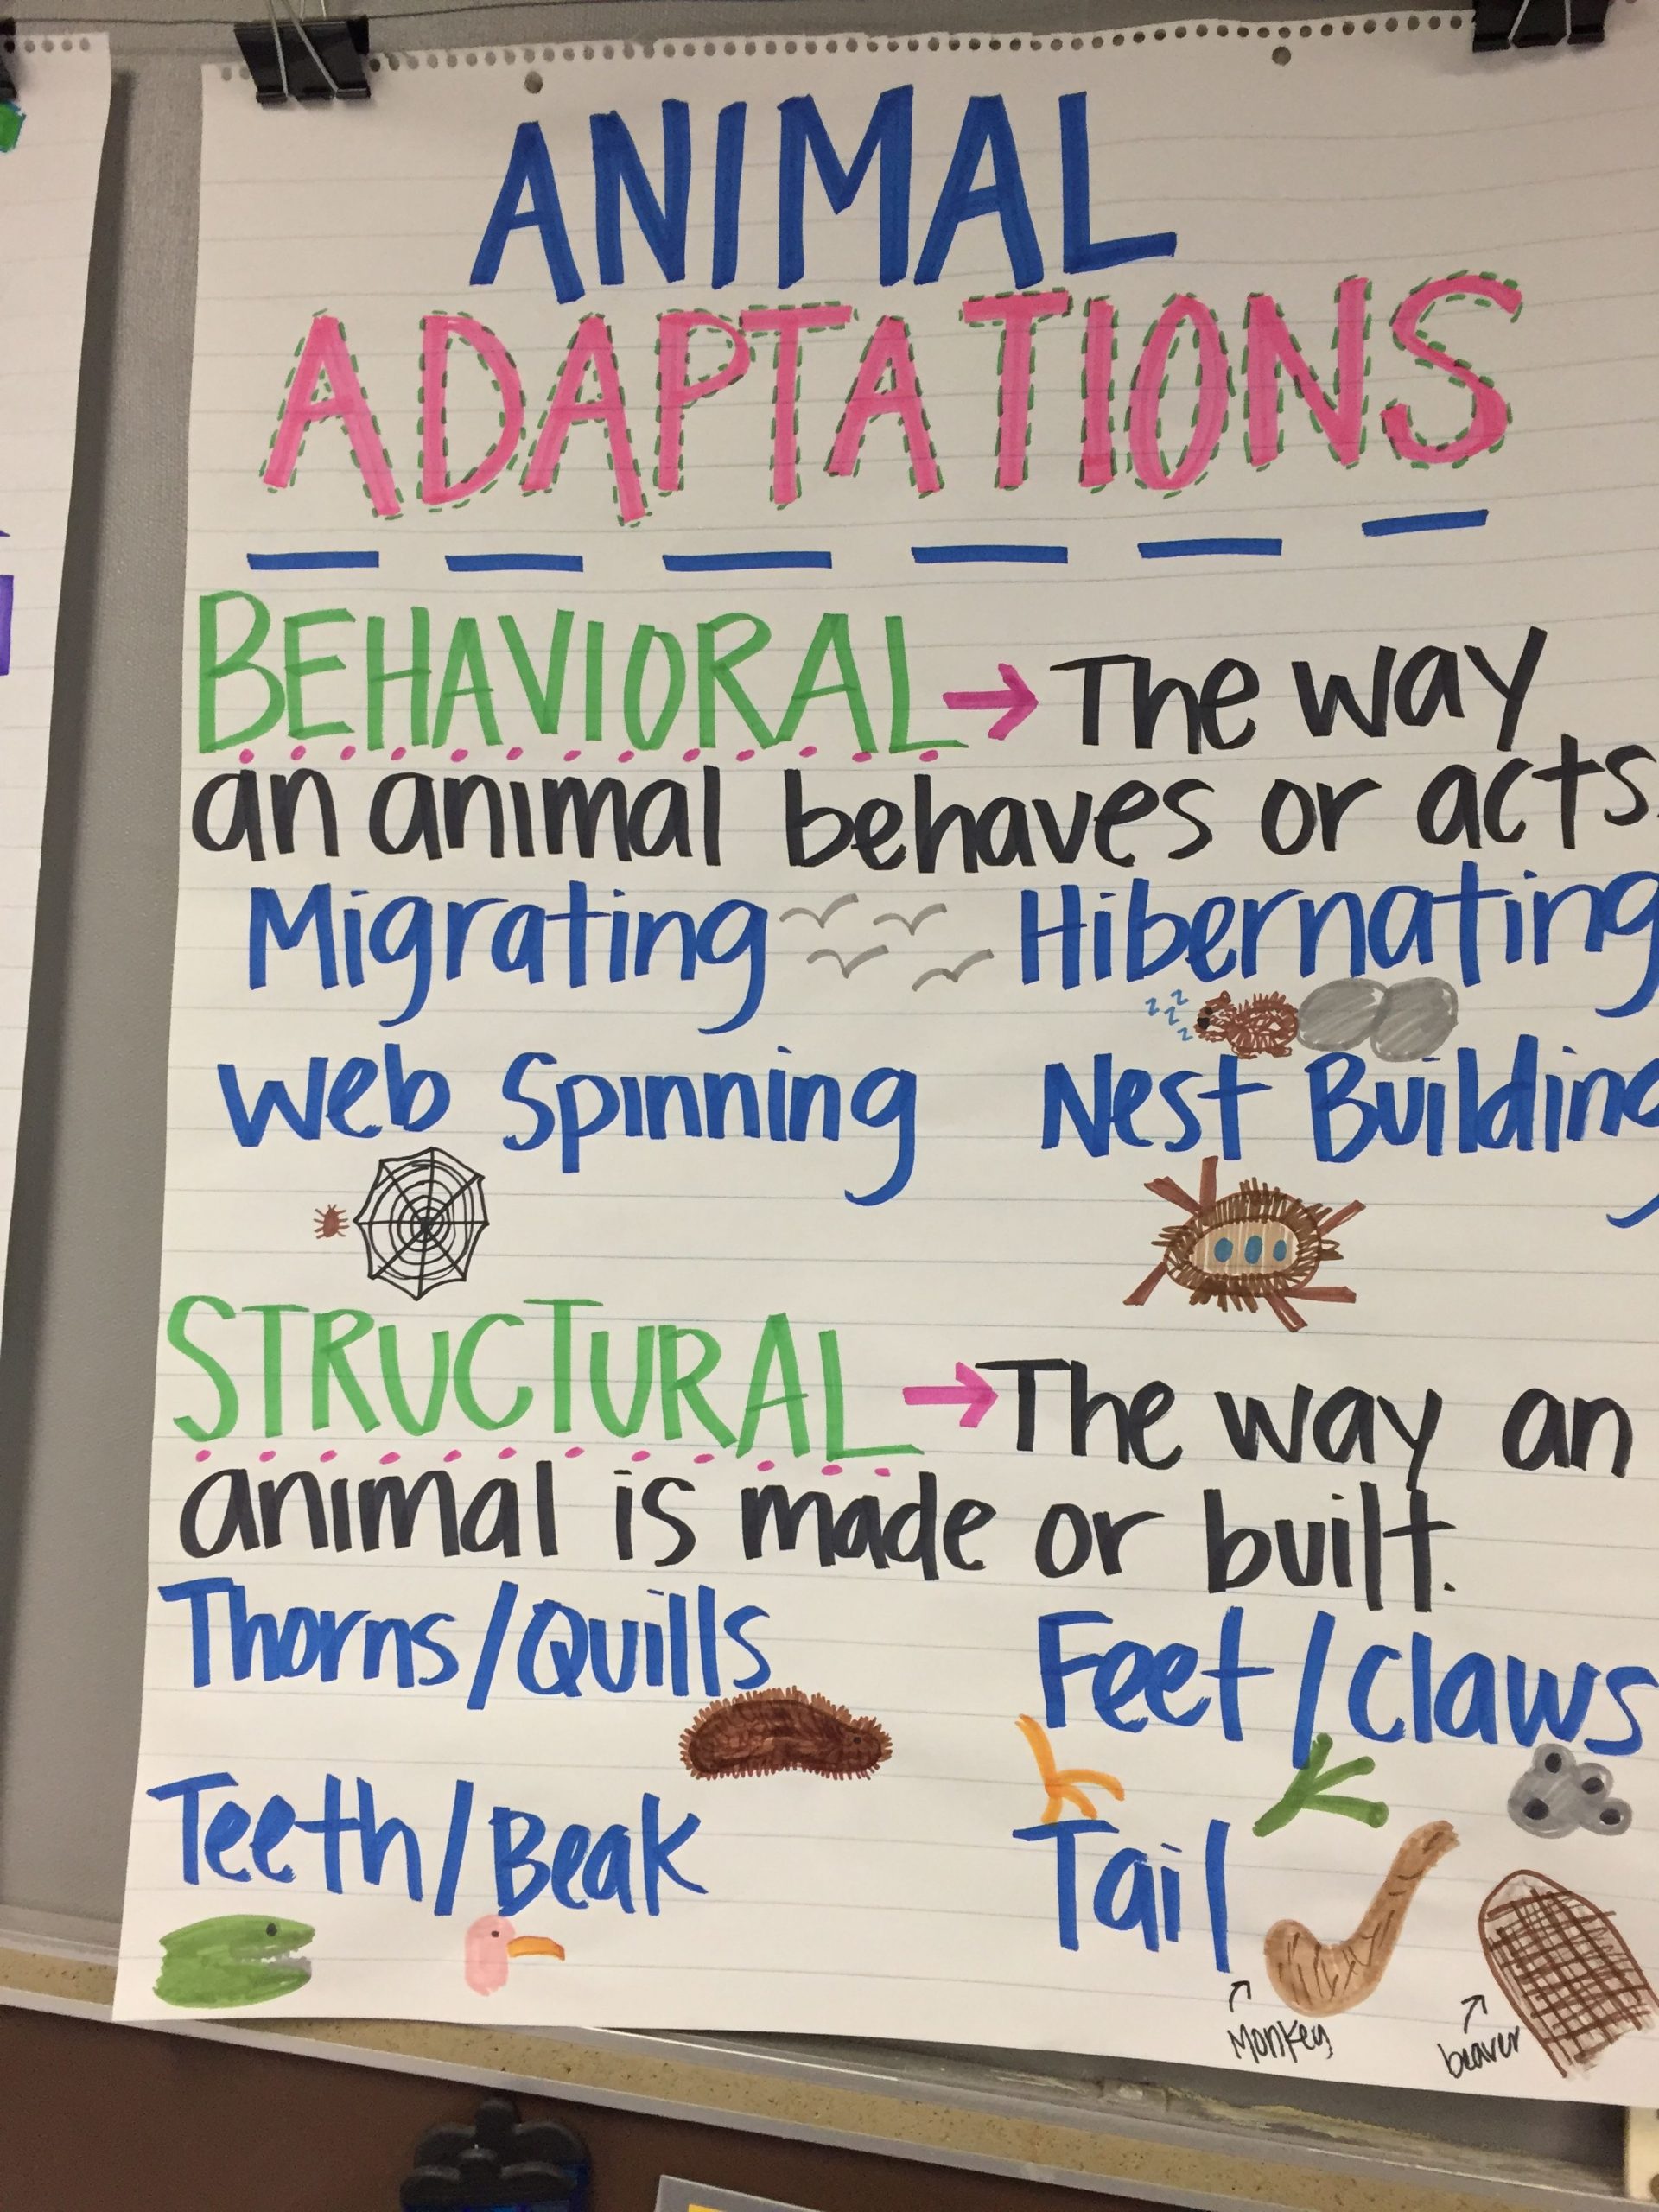 ANIMAL
ADAPTATIONS
BEHAVIORAL → The way
an animal behaves or acts.
Migrating Hibernating
z z z z
Web Spinning Nest Building
STRUCTURAL → The way an
animal is made or built.
Thorns/Quills Feet/Claws
Teeth/Beak Tail
Monkey beaver